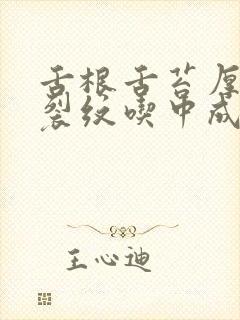 舌根舌苔厚
裂纹喫中成
王心迪